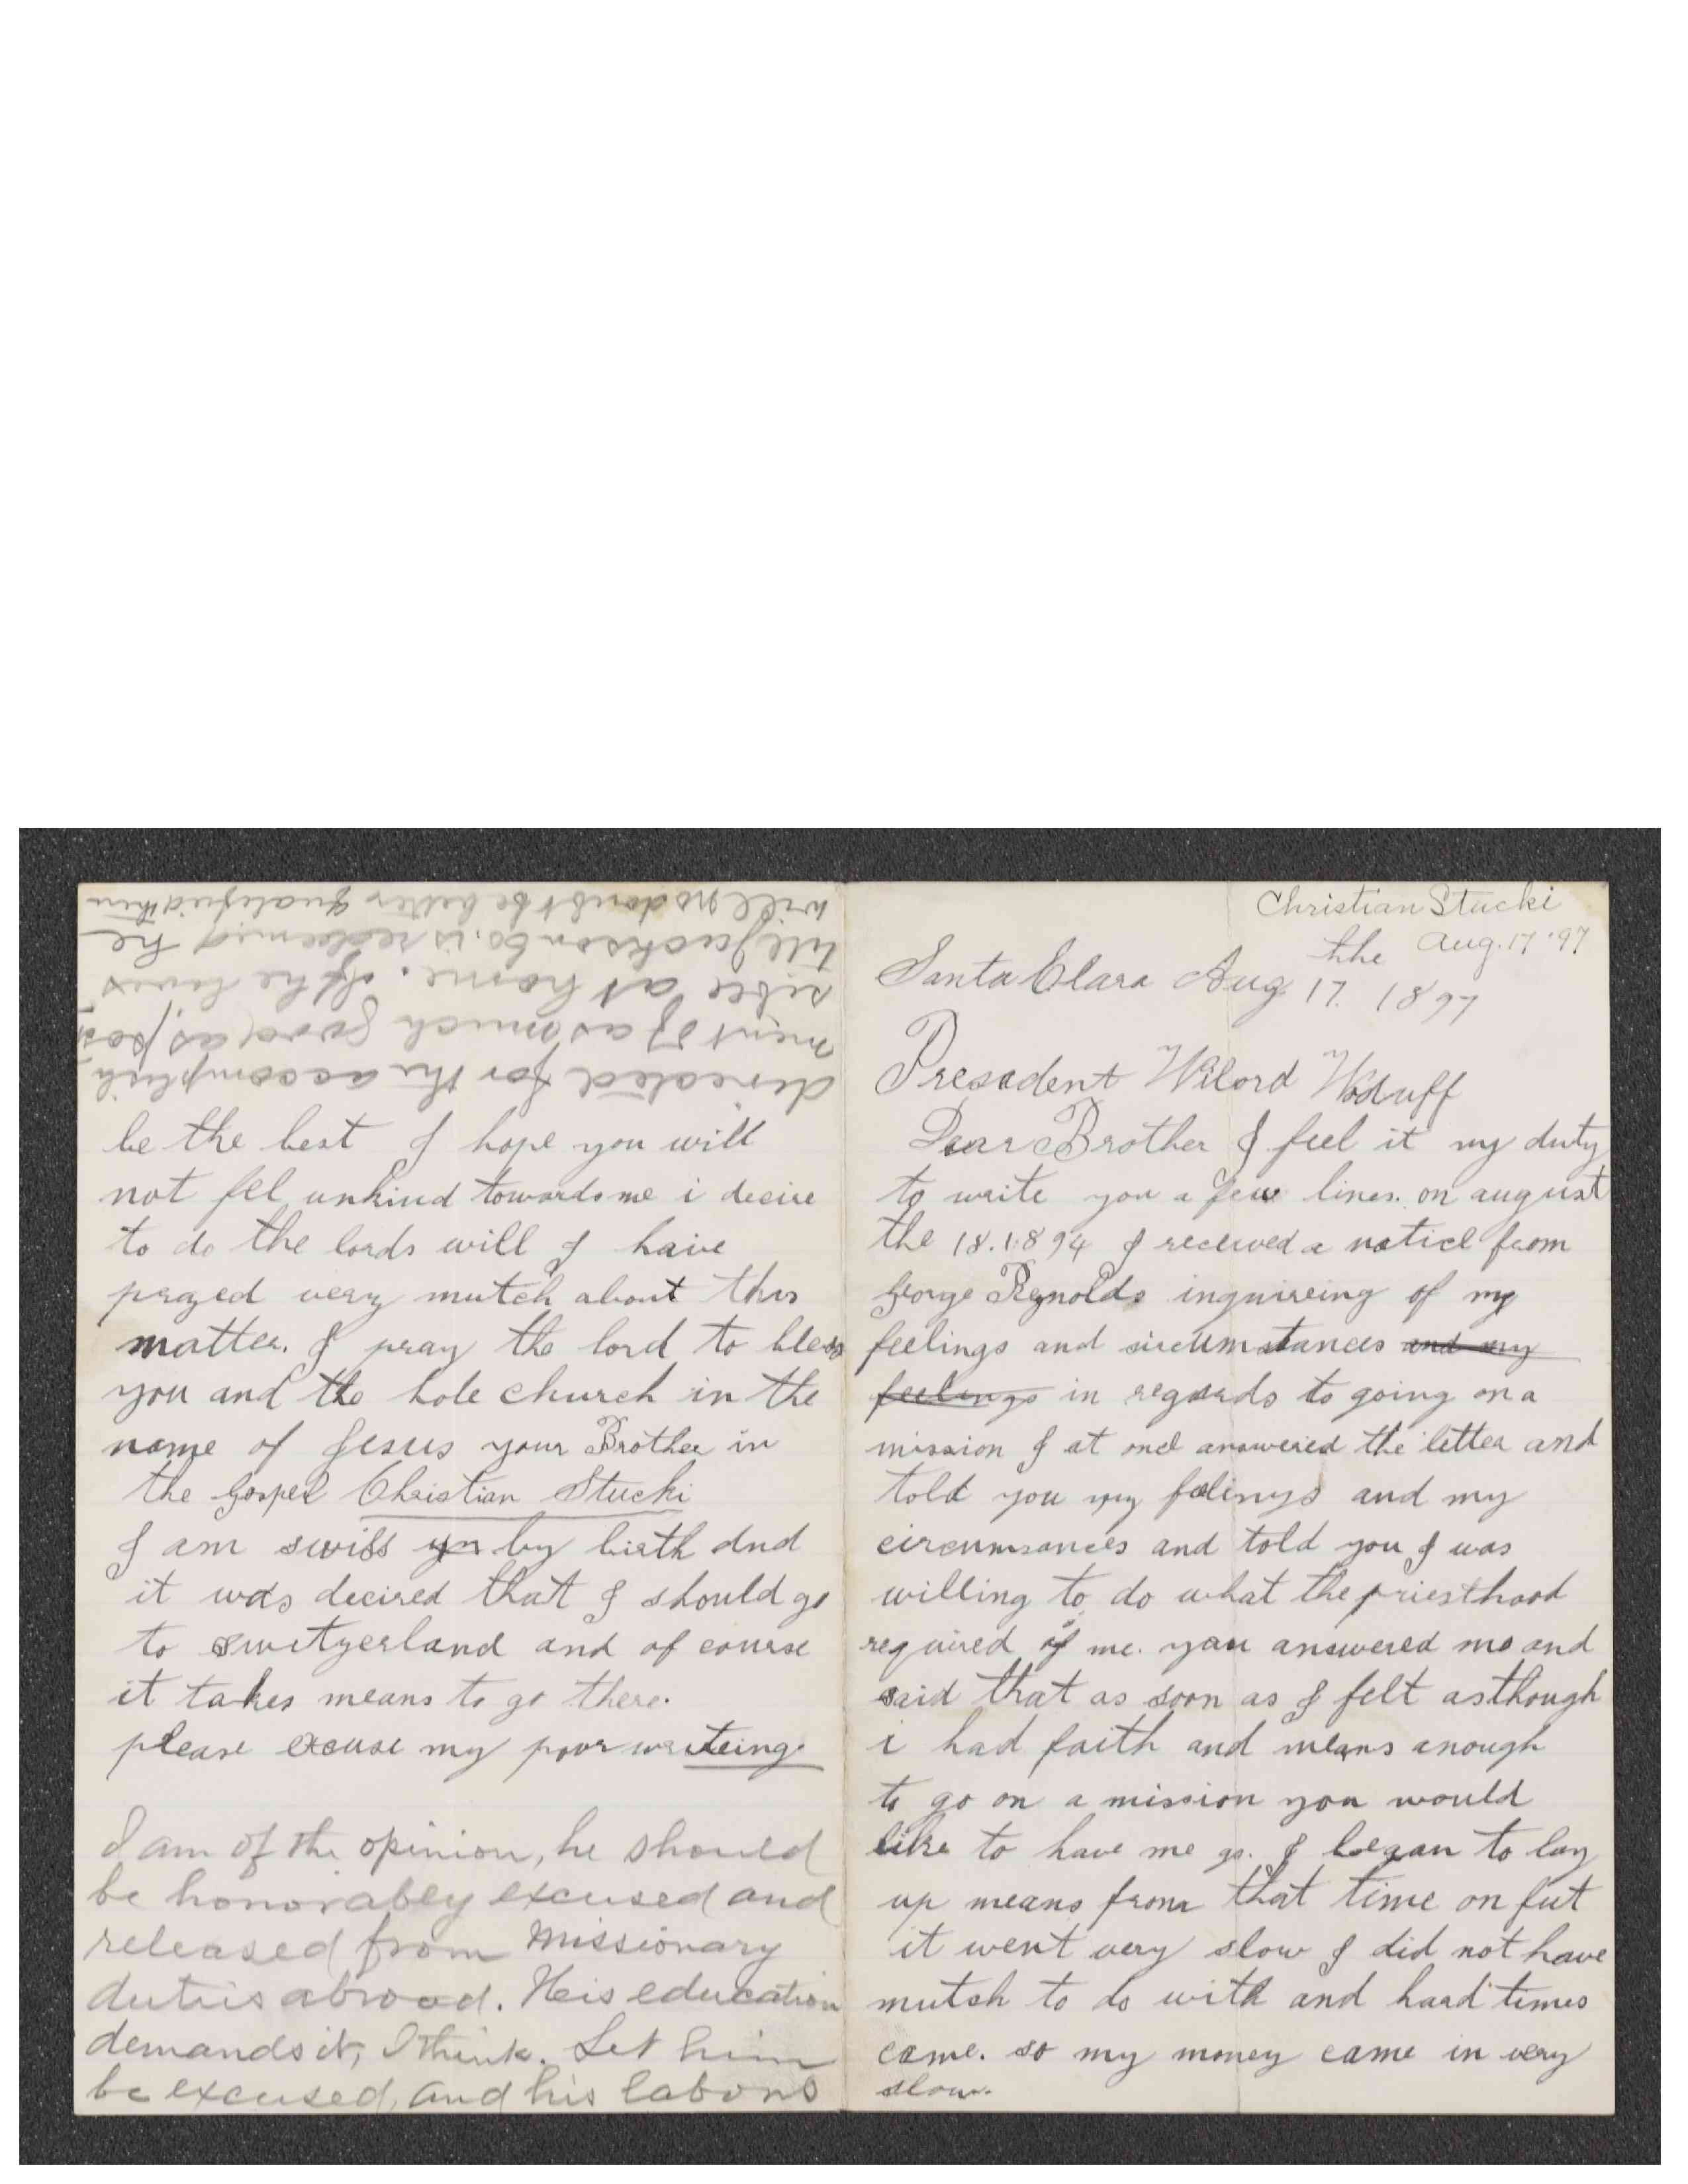 Christian Stucki
Aug. 17 '97
Santa Clara Aug the 17. 1897
Presedent Wilord Woduff
Dear Brother I feel it my duty
to write you a few lines. on august
the 18. 1894 I received a notice from
George Reynolds inquireing of my
feelings and sircumstances and my
feelings in regards to going on a
mission I at once answered the letter and
told you my felings and my
circumsances and told you I was
willing to do what the priesthood
required of me. you answered me and
said that as soon as I felt as though
i had faith and means anough
to go on a mission you would
like to have me go. I began to lay
up means from that time on but
it went very slow I did not have
mutch to do with and hard times
came. so my money came in very
slow.
be the best I hope you will
not fel unkind towards me i decire
to do the lords will I have
prayed very mutch about this
matter. I pray the lord to bless
you and the hole church in the
name of Jesus your Brother in
the Gospel Christian Stucki
I am swiss by birth and
it was decired that I should go
to switzerland and of course
it takes means to go there.
please excuse my poor writeing.
I am of the opinion, he should
be honorably excused and
released from missionary
duties abroad. His education
demands it, I think. Let him
be excused, and his labors
directed for the accomplish
ment of as much good as pos
sible at home. If he lives
till Jackson Co. is redeemed he
will no doubt be better qualified then